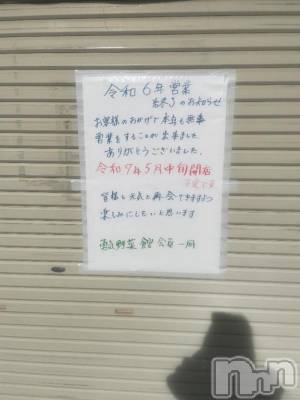 令和6年営業
終了のお知らせ
お客様のおかげで本年も無事
営業をすることが出来ました
ありがとうございました。
令和7年5月中旬開店
予定です
皆様と元気に再会できますよう
楽しみにしたいと思います
野菜館 全員一同
nn